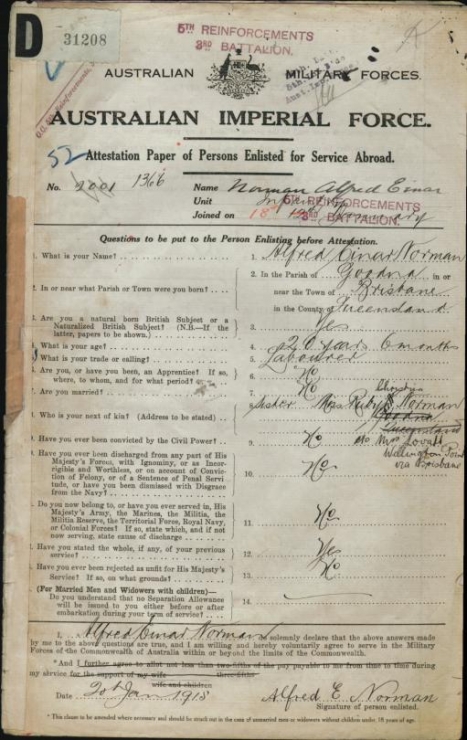 D
31208
5TH REINFORCEMENTS
3RD BATTALION.
AUSTRALIAN MILITARY FORCES.
AUSTRALIAN IMPERIAL FORCE.
52
Attestation Paper of Persons Enlisted for Service Abroad.
No. 2001 1366 Name Norman Alfred Einar
Unit Infantry 5TH REINFORCEMENTS
Joined on 18 3RD BATTALION.
Questions to be put to the Person Enlisting before Attestation.
1. What is your Name? 1. Alfred Einar Norman
2. In or near what Parish or Town were you born? 2. In the Parish of Goodna in or
near the Town of Brisbane
in the County of Queensland
3. Are you a natural born British Subject or a
Naturalized British Subject? (N.B.—If the
latter, papers to be shown.) 3. Yes
4. What is your age? 4. 20 years 6 months
5. What is your trade or calling? 5. Labourer
6. Are you, or have you been, an Apprentice? If so,
where, to whom, and for what period? 6. No
7. Are you married? 7. No
8. Who is your next of kin? (Address to be stated) Sister Miss Ruby Norman
Goodna
Queensland
c/o Mrs Lovell
Wellington Point
via Brisbane
9. Have you ever been convicted by the Civil Power? 9. No
10. Have you ever been discharged from any part of His
Majesty's Forces, with Ignominy, or as Incor-
rigible and Worthless, or on account of Convic-
tion of Felony, or of a Sentence of Penal Servi-
tude, or have you been dismissed with Disgrace
from the Navy? 10. No
11. Do you now belong to, or have you ever served in, His
Majesty's Army, the Marines, the Militia, the
Militia Reserve, the Territorial Force, Royal Navy,
or Colonial Forces? If so, state which, and if not
now serving, state cause of discharge 11. No
12. Have you stated the whole, if any, of your previous
service? 12. Yes
13. Have you ever been rejected as unfit for His Majesty's
Service? If so, on what grounds? 13. No
(For Married Men and Widowers with children)—
Do you understand that no Separation Allowance
will be issued to you either before or after
embarkation during your term of service? 14.
I, Alfred Einar Norman solemnly declare that the above answers made
by me to the above questions are true, and I am willing and hereby voluntarily agree to serve in the Military
Forces of the Commonwealth of Australia within or beyond the limits of the Commonwealth.
*And I further agree to allot not less than two-fifths of the pay payable to me from time to time during
my service for the support of my wife three-fifths
wife and children
Date 20th Jan 1915 Alfred E. Norman
Signature of person enlisted.
* This clause to be amended where necessary and should be struck out in the case of unmarried men or widowers without children under 18 years of age.